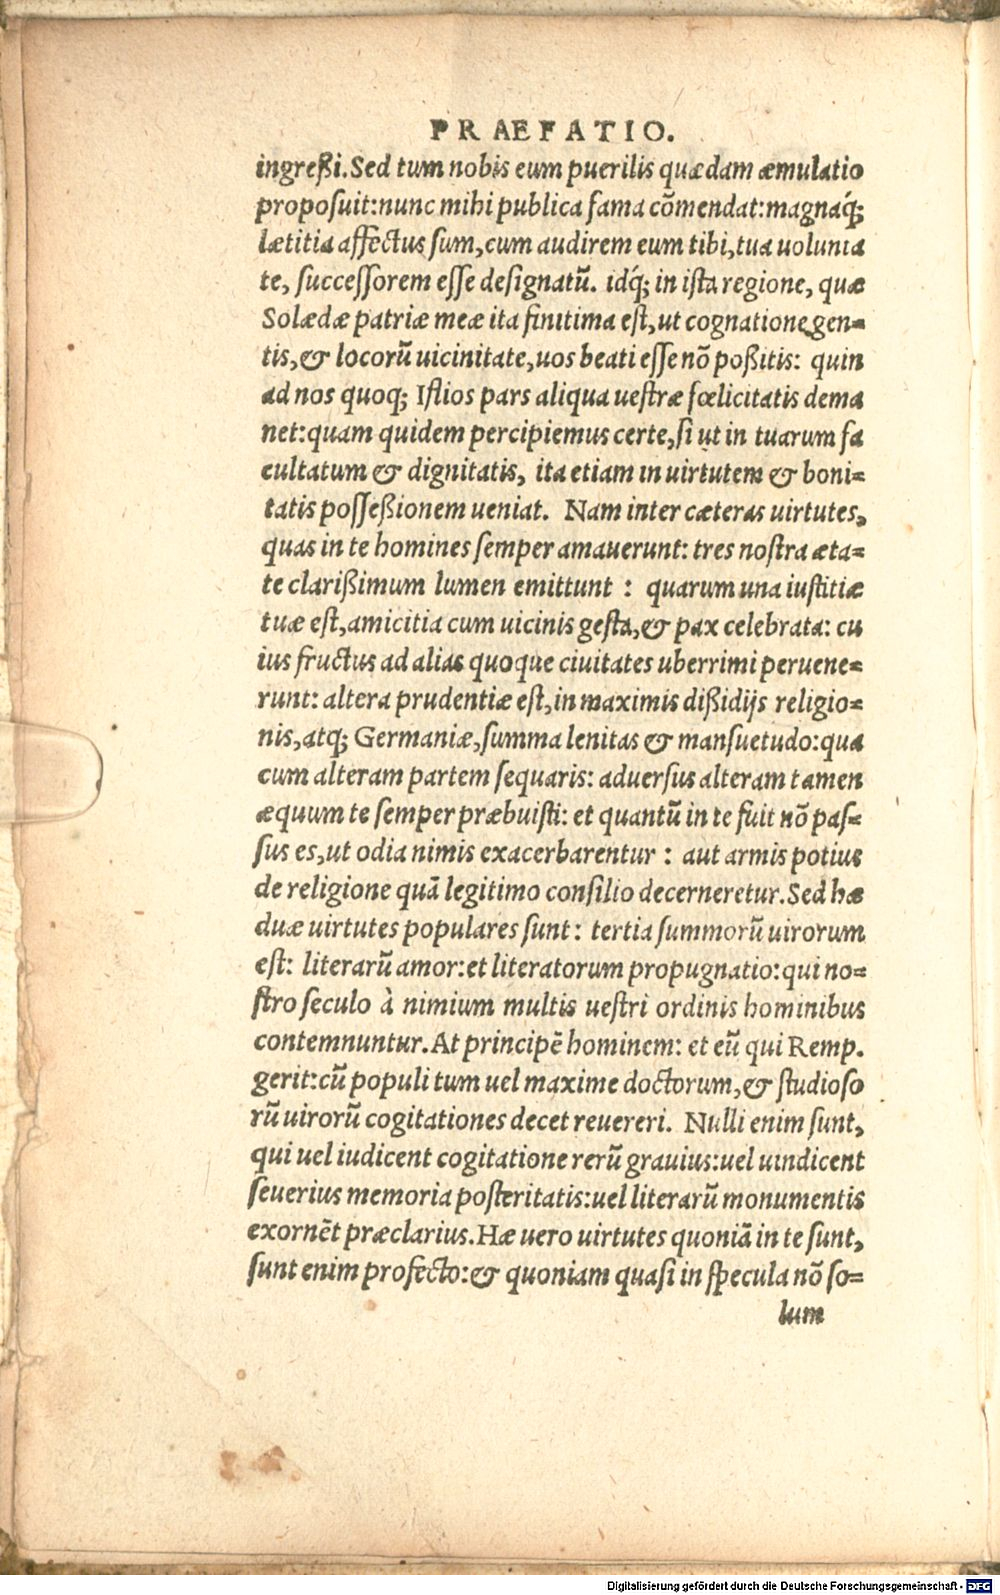 PRAEFATIO.
ingreßi. Sed tum nobis eum puerilis quædam æmulatio
proposuit: nunc mihi publica fama cõmendat: magnaq́;
lætitia affectus sum, cum audirem eum tibi, tua uolunta
te, successorem esse designatũ. idq́; in ista regione, quæ
Solædæ patriæ meæ ita finitima est, ut cognatione gen=
tis, & locorũ uicinitate, uos beati esse nõ poßitis: quin
ad nos quoq; Istios pars aliqua uestræ fœlicitatis dema
net: quam quidem percipiemus certe, si ut in tuarum fa
cultatum & dignitatis, ita etiam in uirtutem & boni=
tatis posseßionem ueniat. Nam inter cæteras uirtutes,
quas in te homines semper amauerunt: tres nostra æta=
te clarißimum lumen emittunt : quarum una iustitiæ
tuæ est, amicitia cum uicinis gesta, & pax celebrata: cu
ius fructus ad alias quoque ciuitates uberrimi peruene=
runt: altera prudentiæ est, in maximis dißidijs religio=
nis, atq; Germaniæ, summa lenitas & mansuetudo: qua
cum alteram partem sequaris: aduersus alteram tamen
æquum te semper præbuisti: et quantũ in te fuit nõ pas=
sus es, ut odia nimis exacerbarentur : aut armis potius
de religione quã legitimo consilio decerneretur. Sed hæ
duæ uirtutes populares sunt : tertia summorũ uirorum
est: literarũ amor: et literatorum propugnatio: qui no=
stro seculo à nimium multis uestri ordinis hominibus
contemnuntur. At principẽ hominem: et eũ qui Remp.
gerit: cũ populi tum uel maxime doctorum, & studioso
rũ uirorũ cogitationes decet reuereri. Nulli enim sunt,
qui uel iudicent cogitatione rerũ grauius: uel uindicent
seuerius memoria posteritatis: uel literarũ monumentis
exornẽt præclarius. Hæ uero uirtutes quoniã in te sunt,
sunt enim profecto: & quoniam quasi in specula nõ so=
lum
Digitalisierung gefördert durch die Deutsche Forschungsgemeinschaft - DFG